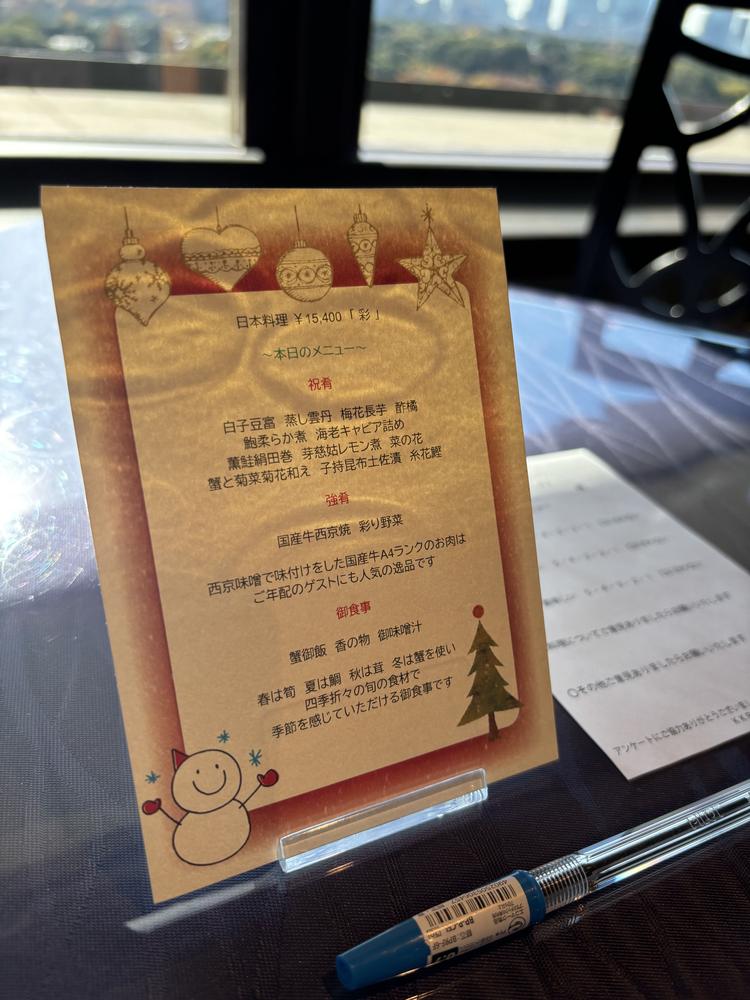 日本料理 ¥15,400 「彩」
～本日のメニュー～
祝肴
白子豆富 蒸し雲丹 梅花長芋 酢橘
鮑柔らか煮 海老キャビア詰め
薫鮭絹田巻 芽慈姑レモン煮 菜の花
蟹と菊菜菊花和え 子持昆布土佐漬 糸花鰹
強肴
国産牛西京焼 彩り野菜
西京味噌で味付けをした国産牛A4ランクのお肉は
ご年配のゲストにも人気の逸品です
御食事
蟹御飯 香の物 御味噌汁
春は筍 夏は鯛 秋は茸 冬は蟹を使い
四季折々の旬の食材で
季節を感じていただける御食事です
〇その他ご意見ありましたらお願いいたします
アンケートにご協力ありがとうござい